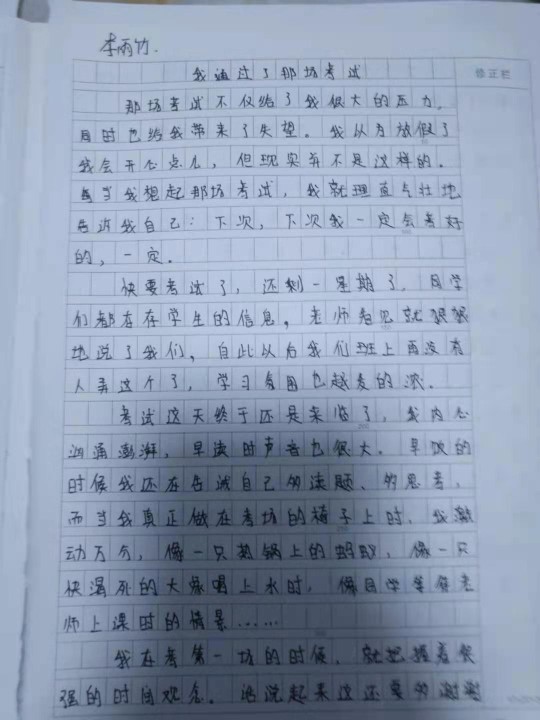 李雨竹.
我通过了那场考试
修正栏
那场考试不仅给了我很大的压力,
同时也给我带来了失望。我以为放假了
我会开心点儿,但现实并不是这样的.
每当我想起那场考试,我就理直气壮地
告诉我自己:下次,下次我一定会考好
的,一定。
快要考试了,还剩一星期了,同学
们都在存学生的信息,老师看见就狠狠
地说了我们,自此以后我们班上再没有
人弄这个了,学习氛围也越发的浓.
考试这天终于还是来临了,我内心
汹涌澎湃,早读时声音也很大。早饭的
时候我还在告诫自己多读题、多思考,
而当我真正做在考场的椅子上时,我激
动万分,像一只热锅上的蚂蚁,像一只
快渴死的大象喝上水时,像同学等待老
师上课时的情景……
我在考第一场的时候,就把握着很
强的时间观念。话说起来这还要多谢谢